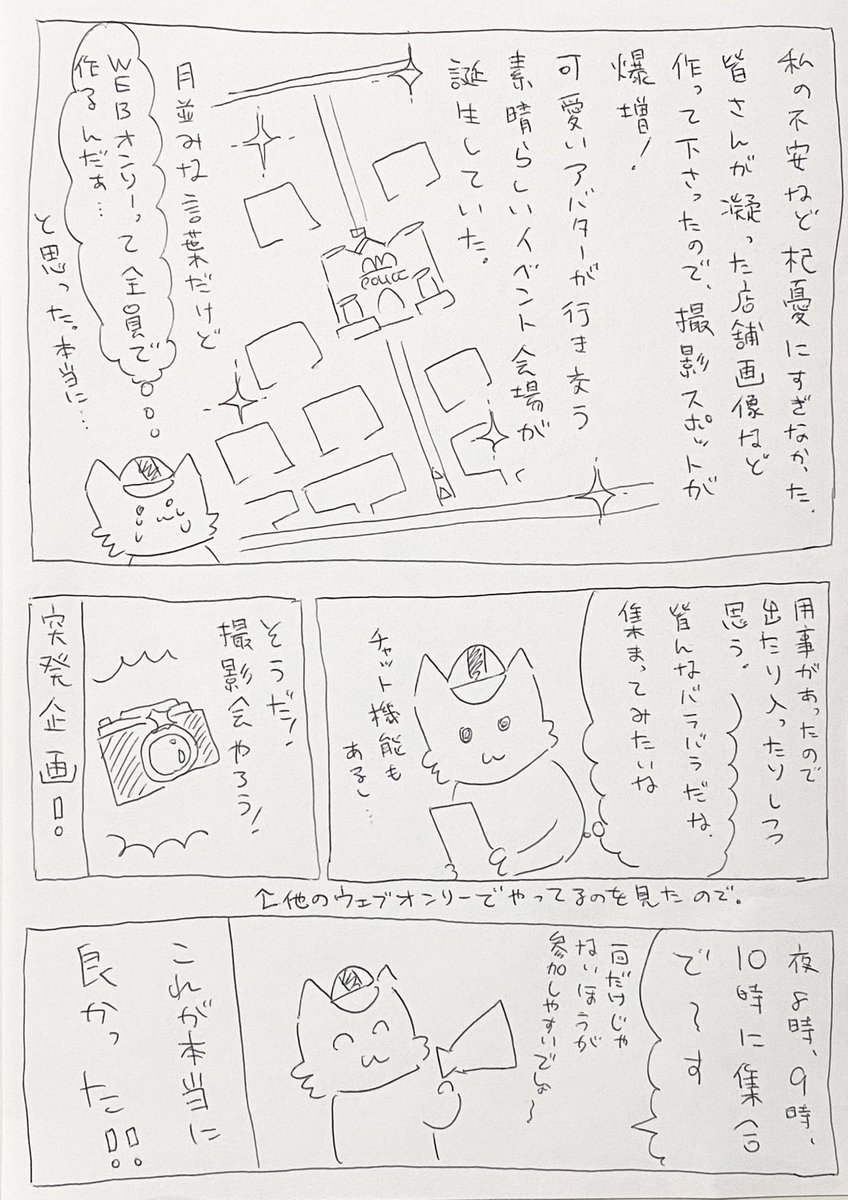 私の不安など杞憂にすぎなかった.
皆さんが凝った店舗画像など
作って下さったので、撮影スポットが
爆増!
可愛いアバターが行き交う
素晴らしいイベント会場が
誕生していた。
POLICE
月並みな言葉だけど
WEBオンリーって全員で
作るんだぁ…
と思った。本当に…
用事があったので
出たり入ったりしつつ
思う。
皆んなバラバラだな.
集まってみたいな
チャット機能も
あるし…
そうだ!
撮影会やろう!
突発企画!!
↑他のウェブオンリーでやってるのを見たので。
夜8時、9時、
10時に集合
で〜す
一回だけじゃ
ないほうが
参加しやすいでしょ〜
これが本当に
良かった!!